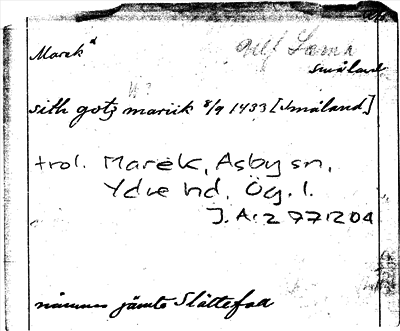 Marek
Småland
sith gotz mariik 8/9 1433 [Småland]
trol. Marek, Asby sn,
Ydre hd, Ög. l.
J.A:2 771204
nämnes jämte Slättefall